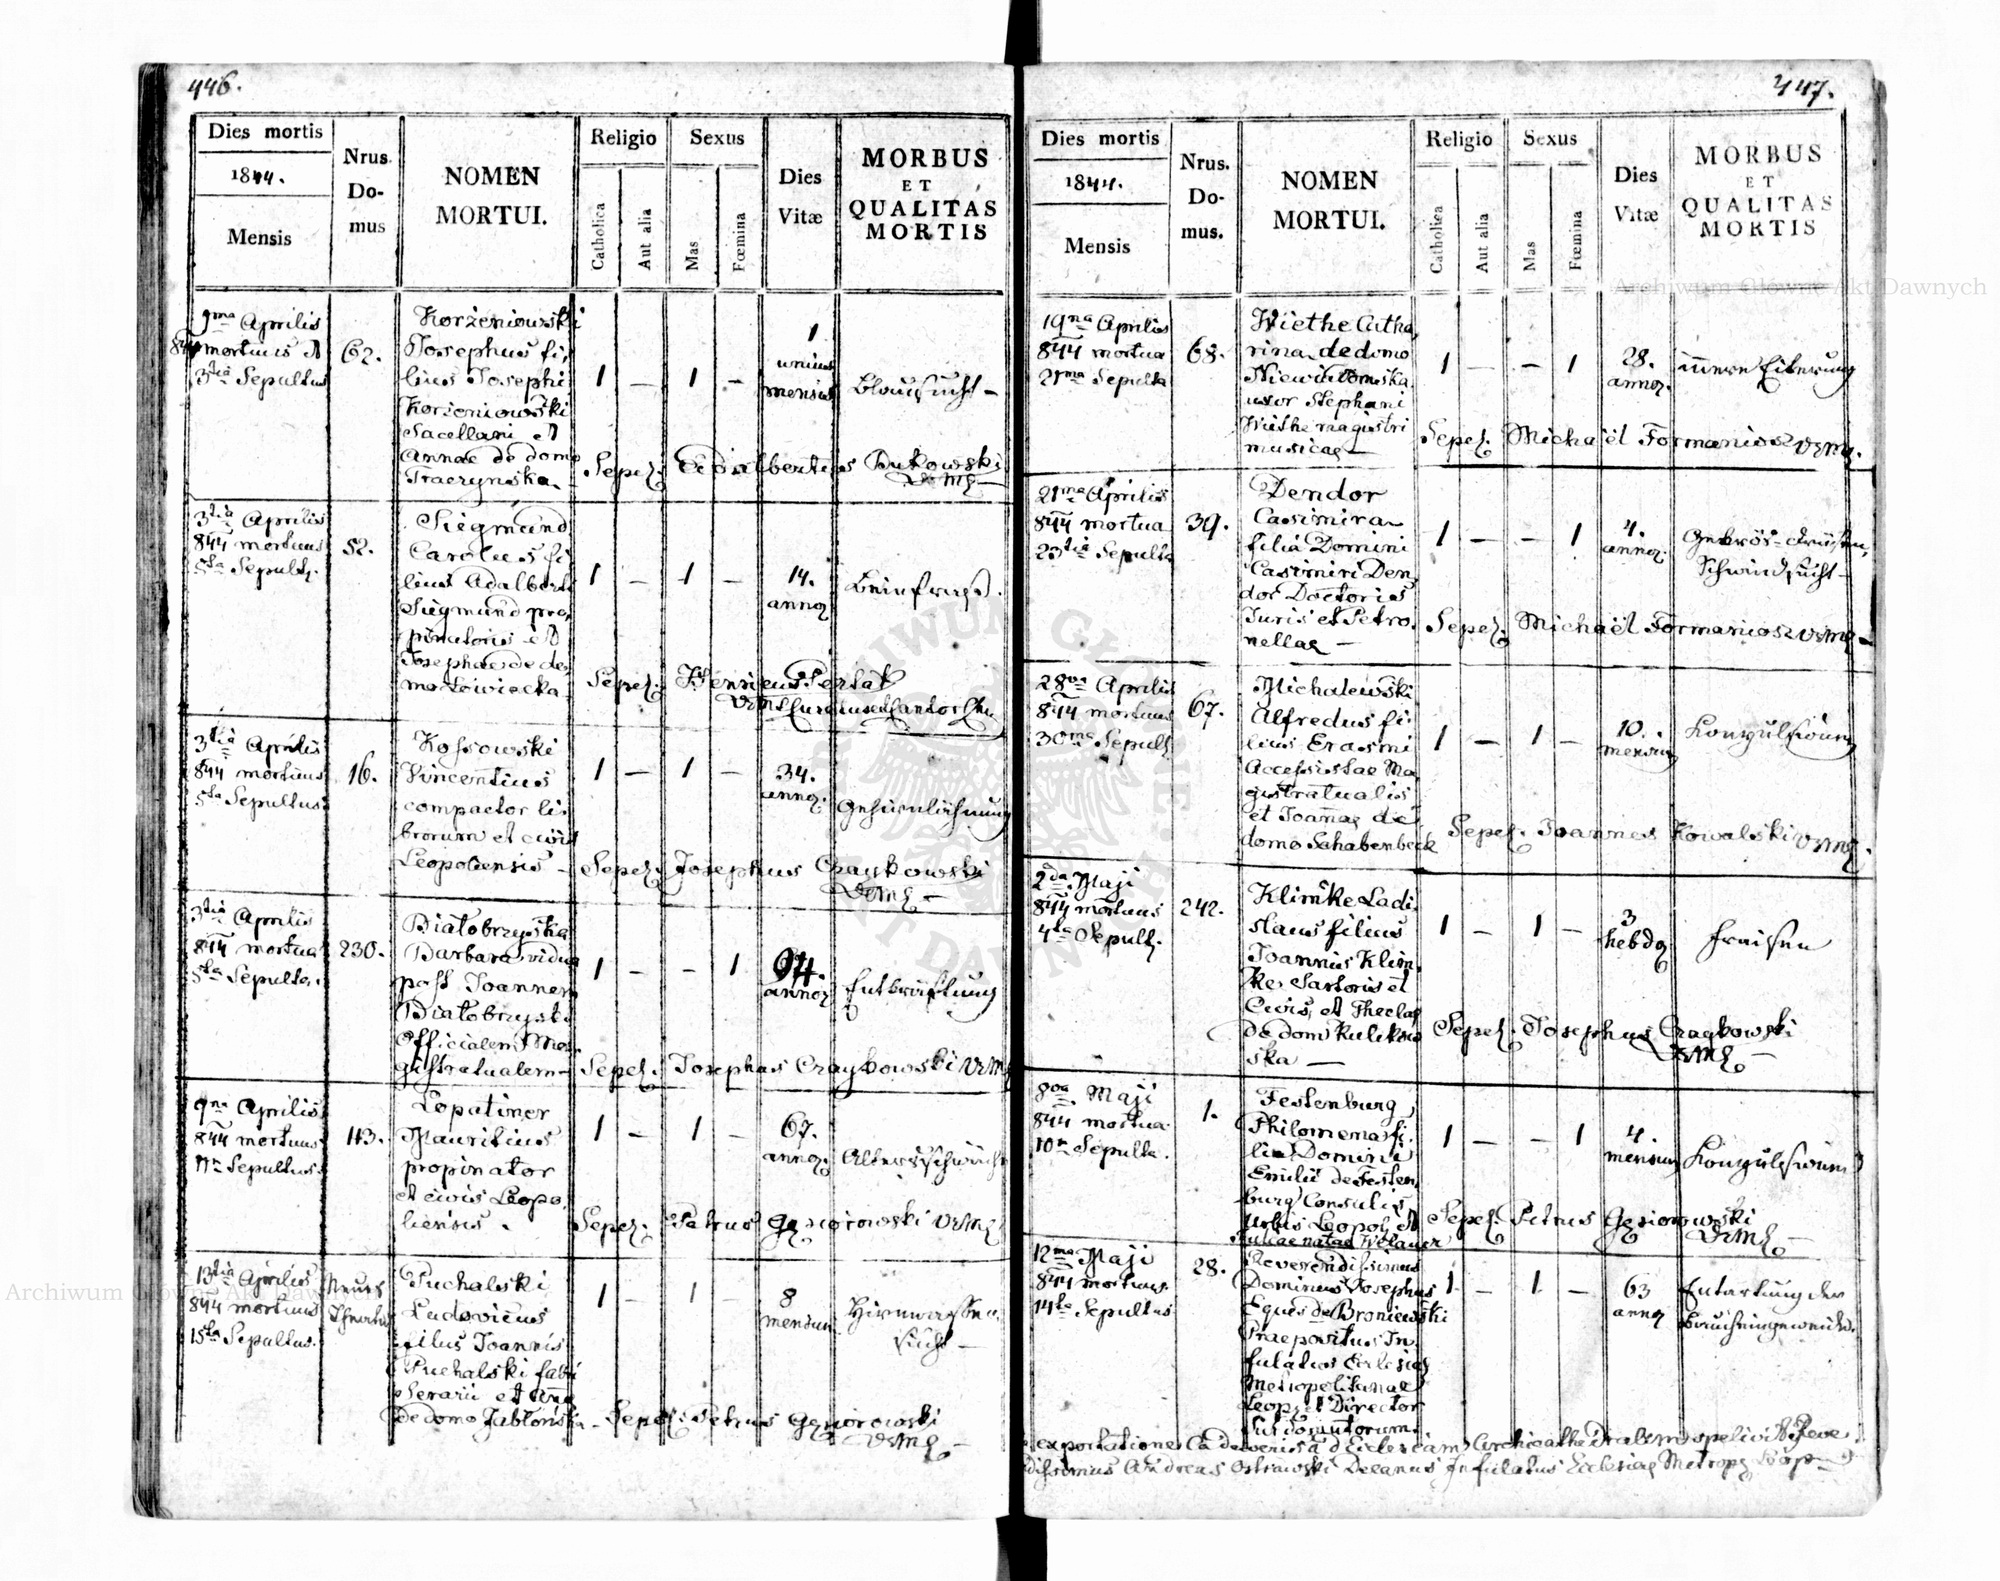 446.
Dies mortis
1844.
Mensis
Nrus.
Do-
mus
NOMEN
MORTUI.
Religio
Catholica
Aut alia
Sexus
Mas
Fœmina
Dies
Vitæ
MORBUS
ET
QUALITAS
MORTIS
Aprilis
mortuus
Sepultus
62.
Korzeniowski
Josephus fi-
lius Josephi
Korzeniowski
Sacellani et
Annae de domo
Traczynska
1 — 1 —
1
unius
mensis
Sepel: Adalbertus Bukowski
3tia Aprilis
844 mortuus
5ta Sepult.
52.
Siegmund
Carolus fi-
lius Adalberti
Siegmund pro-
pinatoris et
Josephae de do-
mo Lowiecka
1 — 1 —
14.
annor
Beinfraß.
Sepel:
3tia Aprilis
844 mortuus
5ta Sepultus
16.
Kossowski
Vincentius
compactor li-
brorum et civis
Leopoliensis —
1 — 1 —
34.
annor.
Gehirnlähmung
Sepel: Josephus Czaykowski
3tia Aprilis
844 mortua
5ta Sepulta.
230.
Białobrzyska
Barbara vidua
post Joannem
Białobrzyski
Officialem Ma-
gistratualem —
1 — — 1
94.
annor
Entkräftung
Sepel: Josephus Czaykowski
9na Aprilis
844 mortuus
11a Sepultus.
113.
Lopatiner
Mauritius
propinator
et civis Leopo-
liensis.
1 — 1 —
67.
annor.
Altersschwäche
Sepel: Petrus Gąsiorowski
13tia Aprilis
844 mortuus
15ta Sepultus.
Neues
Theater
Puchalski
Ludovicus
filius Joannis
Puchalski
et Anna
de domo Jabłońska
1 — 1 —
8
mensium
Hirnwasser-
sucht —
Sepel: Petrus Gąsiorowski
447.
Dies mortis
1844.
Mensis
Nrus.
Do-
mus.
NOMEN
MORTUI.
Religio
Catholica
Aut alia
Sexus
Mas
Fœmina
Dies
Vitæ
MORBUS
ET
QUALITAS
MORTIS
19na Aprilis
844 mortua
21ma Sepulta
68.
Wiethe Catha-
rina de domo
Niewidomska
uxor Stephani
Wiethe magistri
musicae —
1 — — 1
28.
annor.
innere Eiterung
Sepel: Michaël Formaniosz
21ma Aprilis
844 mortua
23tia Sepulta
39.
Dendor
Casimira
filia Domini
Casimiri Den-
dor Doctoris
Juris et Petro-
nellae —
1 — — 1
4.
annor.
Gekrös-drüsen
Schwindsucht —
Sepel: Michaël Formaniosz
28va Aprilis
844 mortuus
30ma Sepult.
67.
Michalewski
Alfredus fi-
lius Erasmi
Accessistae Ma-
gistratualis
et Joannae de
domo Schabenbeck
1 — 1 —
10.
mensium
Konvulsionen
Sepel: Joannes Kowalski
2da Maji
844 mortuus
4ta Sepult.
242.
Klimke Ladi-
slaus filius
Joannis Klim-
ke Sartoris et
Civis, et Theclae
de domo Kulikow-
ska —
1 — 1 —
3
hebdo
Fraisen
Sepel: Josephus Czaykowski
8va Maji
844 mortua
10a Sepulta.
1.
Festenburg
Philomena fi-
lia Domini
Emilii de Festen-
burg Consulis
Urbis Leopol. et
Juliae natae Welauer
1 — — 1
4.
mensium
Konvulsionen
Sepel: Petrus Gąsiorowski
12ma Maji
844 mortuus
14ta Sepultus
28.
Reverendissimus
Dominus Josephus
Eques de Broniewski
Praepositus In-
fulatus Ecclesiae
Metropolitanae
Leop. et Director
1 — 1 —
63
annor
Entartung der
Baucheingeweide.
exportationem Cadaveris ad Ecclesiam Archicathedralem sepelivit Reve-
dissimus Andreas Ostrawski Decanus Infulatus Ecclesiae Metrop. Leop.
Archiwum Główne Akt Dawnych
Archiwum Główne Akt Dawnych
ARCHIWUM GŁÓWNE AKT DAWNYCH